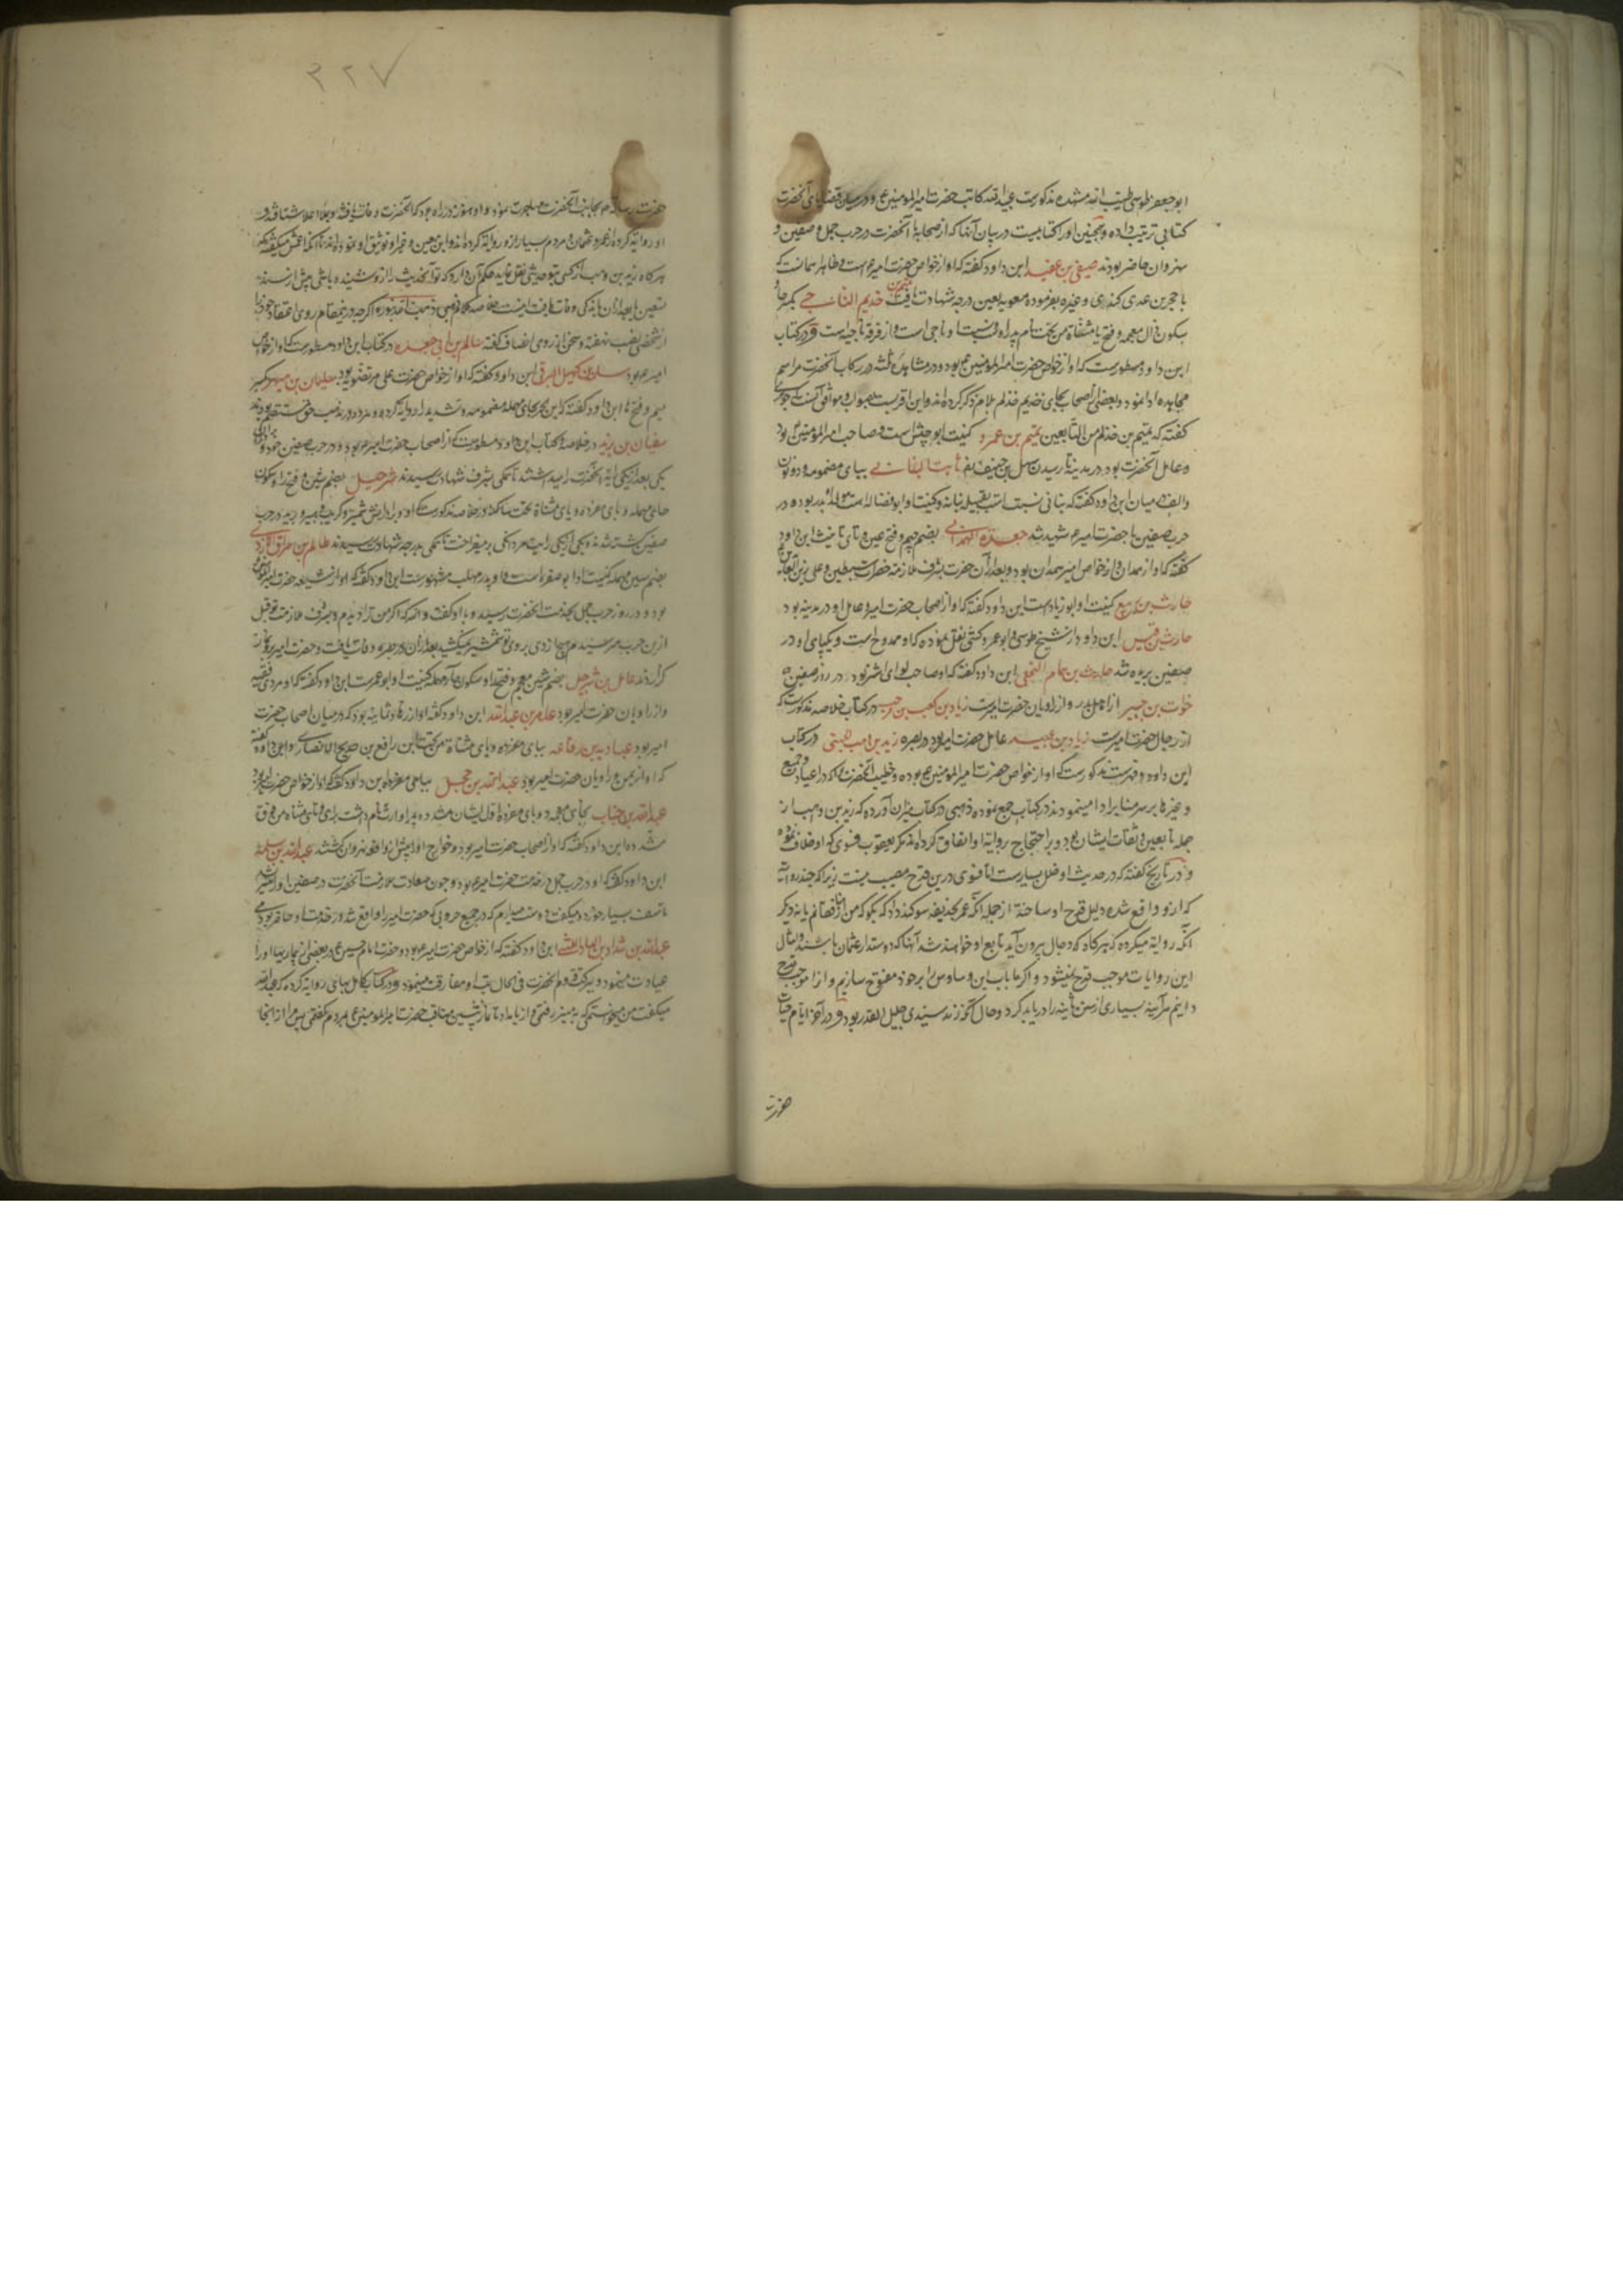 ابو جعفر طوسی مذکورست عبیدالله کاتب حضرت امیرالمومنین ع و در بیان قضایای آنحضرت
کتابی ترتیب داده و همچنین او را کتابیست در بیان آنها که از صحابهٔ آنحضرت در حرب جمل و صفین و
نهروان حاضر بودند صیفی بن ابن داود گفته که او از خواص حضرت امیرم است و ظاهرا همانست که
با حجر بن عدی کندی و غیره بفرموده معویه لعین درجه شهادت یافت خدیم الناجی بکسر حا و
سکون ذال معجمه و فتح یا مثناة من تحت نام پدر اوست و ناجی است و از فرقه ناجیه است و در کتاب
ابن داود مسطورست که او از خواص حضرت امیرالمومنین ع بود و در مشاهد ثلثه در رکاب آنحضرت مراسم
مجاهده ادا نمود و بعضی اصحاب بجای خدیم خذلم بلام ذکر کرده اند و این اقربست بصواب و موافق آنست که جوهری
گفته که تمیم بن خذلم من التابعین تمیم بن عمرو کنیت ابو حبش است و صاحب امیرالمومنین بود
و عامل آنحضرت بود در مدینه تا رسیدن سهل بن حنیف ثابت البنانی ببای مضمومه و دو نون
والف در میان ابن داود گفته که بنانی نسبت است بقبیله بنانه و کنیت او ابو فضاله است در
حرب صفین با حضرت امیرم شهید شد جعده الهمدانی بضم جیم و فتح عین و تای تانیث ابن داود
گفته که او از همدان و از خواص امیر همدان بود و بعد از آن حضرت بشرف ملازمت حضرات سبطین و علی زین العابدین
حارث بن ربیع کنیت او ابو زیاد است ابن داود گفته که او از اصحاب حضرت امیر و عامل او در مدینه بود
حارث بن قیس ابن داود از شیخ طوسی و ابو عمرو کشی نقل نموده که او ممدوح است و یکپای او در
صفین بریده شد حارث بن همام النخعی ابن داود گفته که او صاحب لوای اشتر بود در روز صفین
خوات بن جبیر از اهل بدر و از راویان حضرت امیرست زیاد بن کعب بن مرحب در کتاب خلاصه مذکورست که
از رجال حضرت امیرست زیاد بن عبید عامل حضرت امیر بود در بصره زید بن وهب الجهنی در کتاب
ابن داود و فهرست مذکورست که او از خواص حضرت امیرالمومنین ع بوده و خطب آنحضرت را که در اعیاد و جمع
و غیرها بر سر منابر ادا مینمودند در کتاب جمع نموده ذهبی در کتاب میزان آورده که زید بن وهب از
جمله تابعین و ثقات ایشان بود و بر احتجاج روایة او اتفاق کرده اند مگر یعقوب فسوی که او خلاف نموده
و در تاریخ گفته که در حدیث او خلل بسیارست اما فسوی درین قدح مصیب نیست زیرا که چند روایت
که ازو واقع شده دلیل قدح او ساخته از جمله آنکه عمر بحذیفه سوکند داد که بگو که من از منافقانم یا نه دیگر
آنکه روایه میکرده که هرگاه که دجال بیرون آید تابع او خواهند شد آنها که دوستدار عثمان باشند و امثال
این روایات موجب قدح نمیشود و اگر ما باب این وساوس را بر خود مفتوح سازیم و از آن موجب قدح
دانیم هر آینه بسیاری از سنن ثابته را در باید کرد و حال آنکه زید سیدی جلیل القدر بود و در آخر ایام حیات
حضرت
۳۲۷
حضرت رسالت م بجانب آنحضرت مهاجرت نمود و او هنوز در راه بود که آنحضرت وفات یافته و بملاء اعلا شتافته و
او روایه کرده از عمر و عثمان و مردم بسیار ازو روایة کرده اند و ابن معین و غیر او توثیق او نموده اند تا آنکه اعمش میگفته که
هر گاه زید بن وهب از کسی بتو حدیثی نقل نماید حکم آن دارد که تو آنحدیث را ازو شنیده باشی پیش از سنه
تسعین یا بعد از آن باندکی وفات یافت اینست خلاصه کلام ذهبی
سالم بن ابی جعده در کتاب ابن داود مسطورست که او از خواص
امیرم بود سلمة بن کهیل البرقی ابن داود گفته که او از خواص حضرت علی مرتضی بود سلیمان بن مسهر بکسر
میم و فتح ها ابن داود گفته که
سفیان بن یزید در خلاصه و کتاب ابن داود مسطورست که از اصحاب حضرت امیرم بود و در حرب صفین خود و برادران
یکی بعد از یکی رایت آنحضرت را میداشتند تا همگی بشرف شهادت رسیدند شرحبیل بضم شین و فتح را و سکون
حای مهمله و بای مفرده و یای مثناة تحت ساکنه در خلاصه مذکورست که او و برادرانش شمیر و کریب و هبیره و برید در حرب
صفین کشته شدند و یکی از یکی رایت مردانگی برمیفراخت تا همگی بدرجه شهادت رسیدند ظالم بن سراق الازدی
بضم سین مهمله کنیت او ابو صفره است و او پدر مهلب مشهورست ابن داود گفته که او از شیعه حضرت امیرالمومنین
بود و در روز حرب جمل بخدمت آنحضرت رسیده و با او گفت والله که اگر من ترا دیدم و بشرف ملازمت تو قبل
ازین حرب میرسیدم هیچ ازدی بر روی تو شمشیر نمیکشید بعد از آن در بصره وفات یافت و حضرت امیر برو نماز
گزارد عامل بن شرحبیل بضم شین معجمه و فتح را و سکون حاء مهمله کنیت او ابو عمرست ابن داود گفته که او مردی فقیه
و از راویان حضرت امیر بود عامر بن عبدالله ابن داود گفته او از زهاد ثمانیه بود که در میان اصحاب حضرت
امیر بود عبایه بن رفاعه ببای مفرده و یای مثناة من تحت ابن رافع بن خدیج الانصاری و ابن داود گفته
که او از یمن و راویان حضرت امیر بود عبدالله بن حجل ابن داود گفته که او از خواص حضرت امیر بود
عبدالله بن خباب بخای معجمه و بای مفرده اول ایشان مشدده پدر او ارت نام داشت برای و تای مثناة من فوق
مشدده ابن داود گفته که او از اصحاب حضرت امیر بود و خوارج او را پیش از واقعه نهروان کشتند عبدالله بن سلمه
ابن داود گفته که او در حرب جمل در خدمت حضرت امیرم بود و چون سعادت معرفت آنحضرت در صفین او را میسر نشد
تاسف بسیار خورد و میگفت دوست میدارم که در جمیع حروبی که حضرت امیر را واقع شد در خدمت او حاضر بودمی
عبدالله بن شداد بن الهاد اللیثی ابن داود گفته که از خواص حضرت امیرم بود و حضرت امام حسین ع در بعضی از بیماریها او را
عیادت مینمود و ببرکت قدوم آنحضرت فی الحال تب ازو مفارقت مینمود و در کتاب کامل بهائی روایة کرده که عبدالله
میگفت من میخواستمی که بر منبر رفتمی و از بامداد تا نماز پیشین مناقب حضرت امیرالمومنین ع بمردم گفتمی پس مرا از آنجا